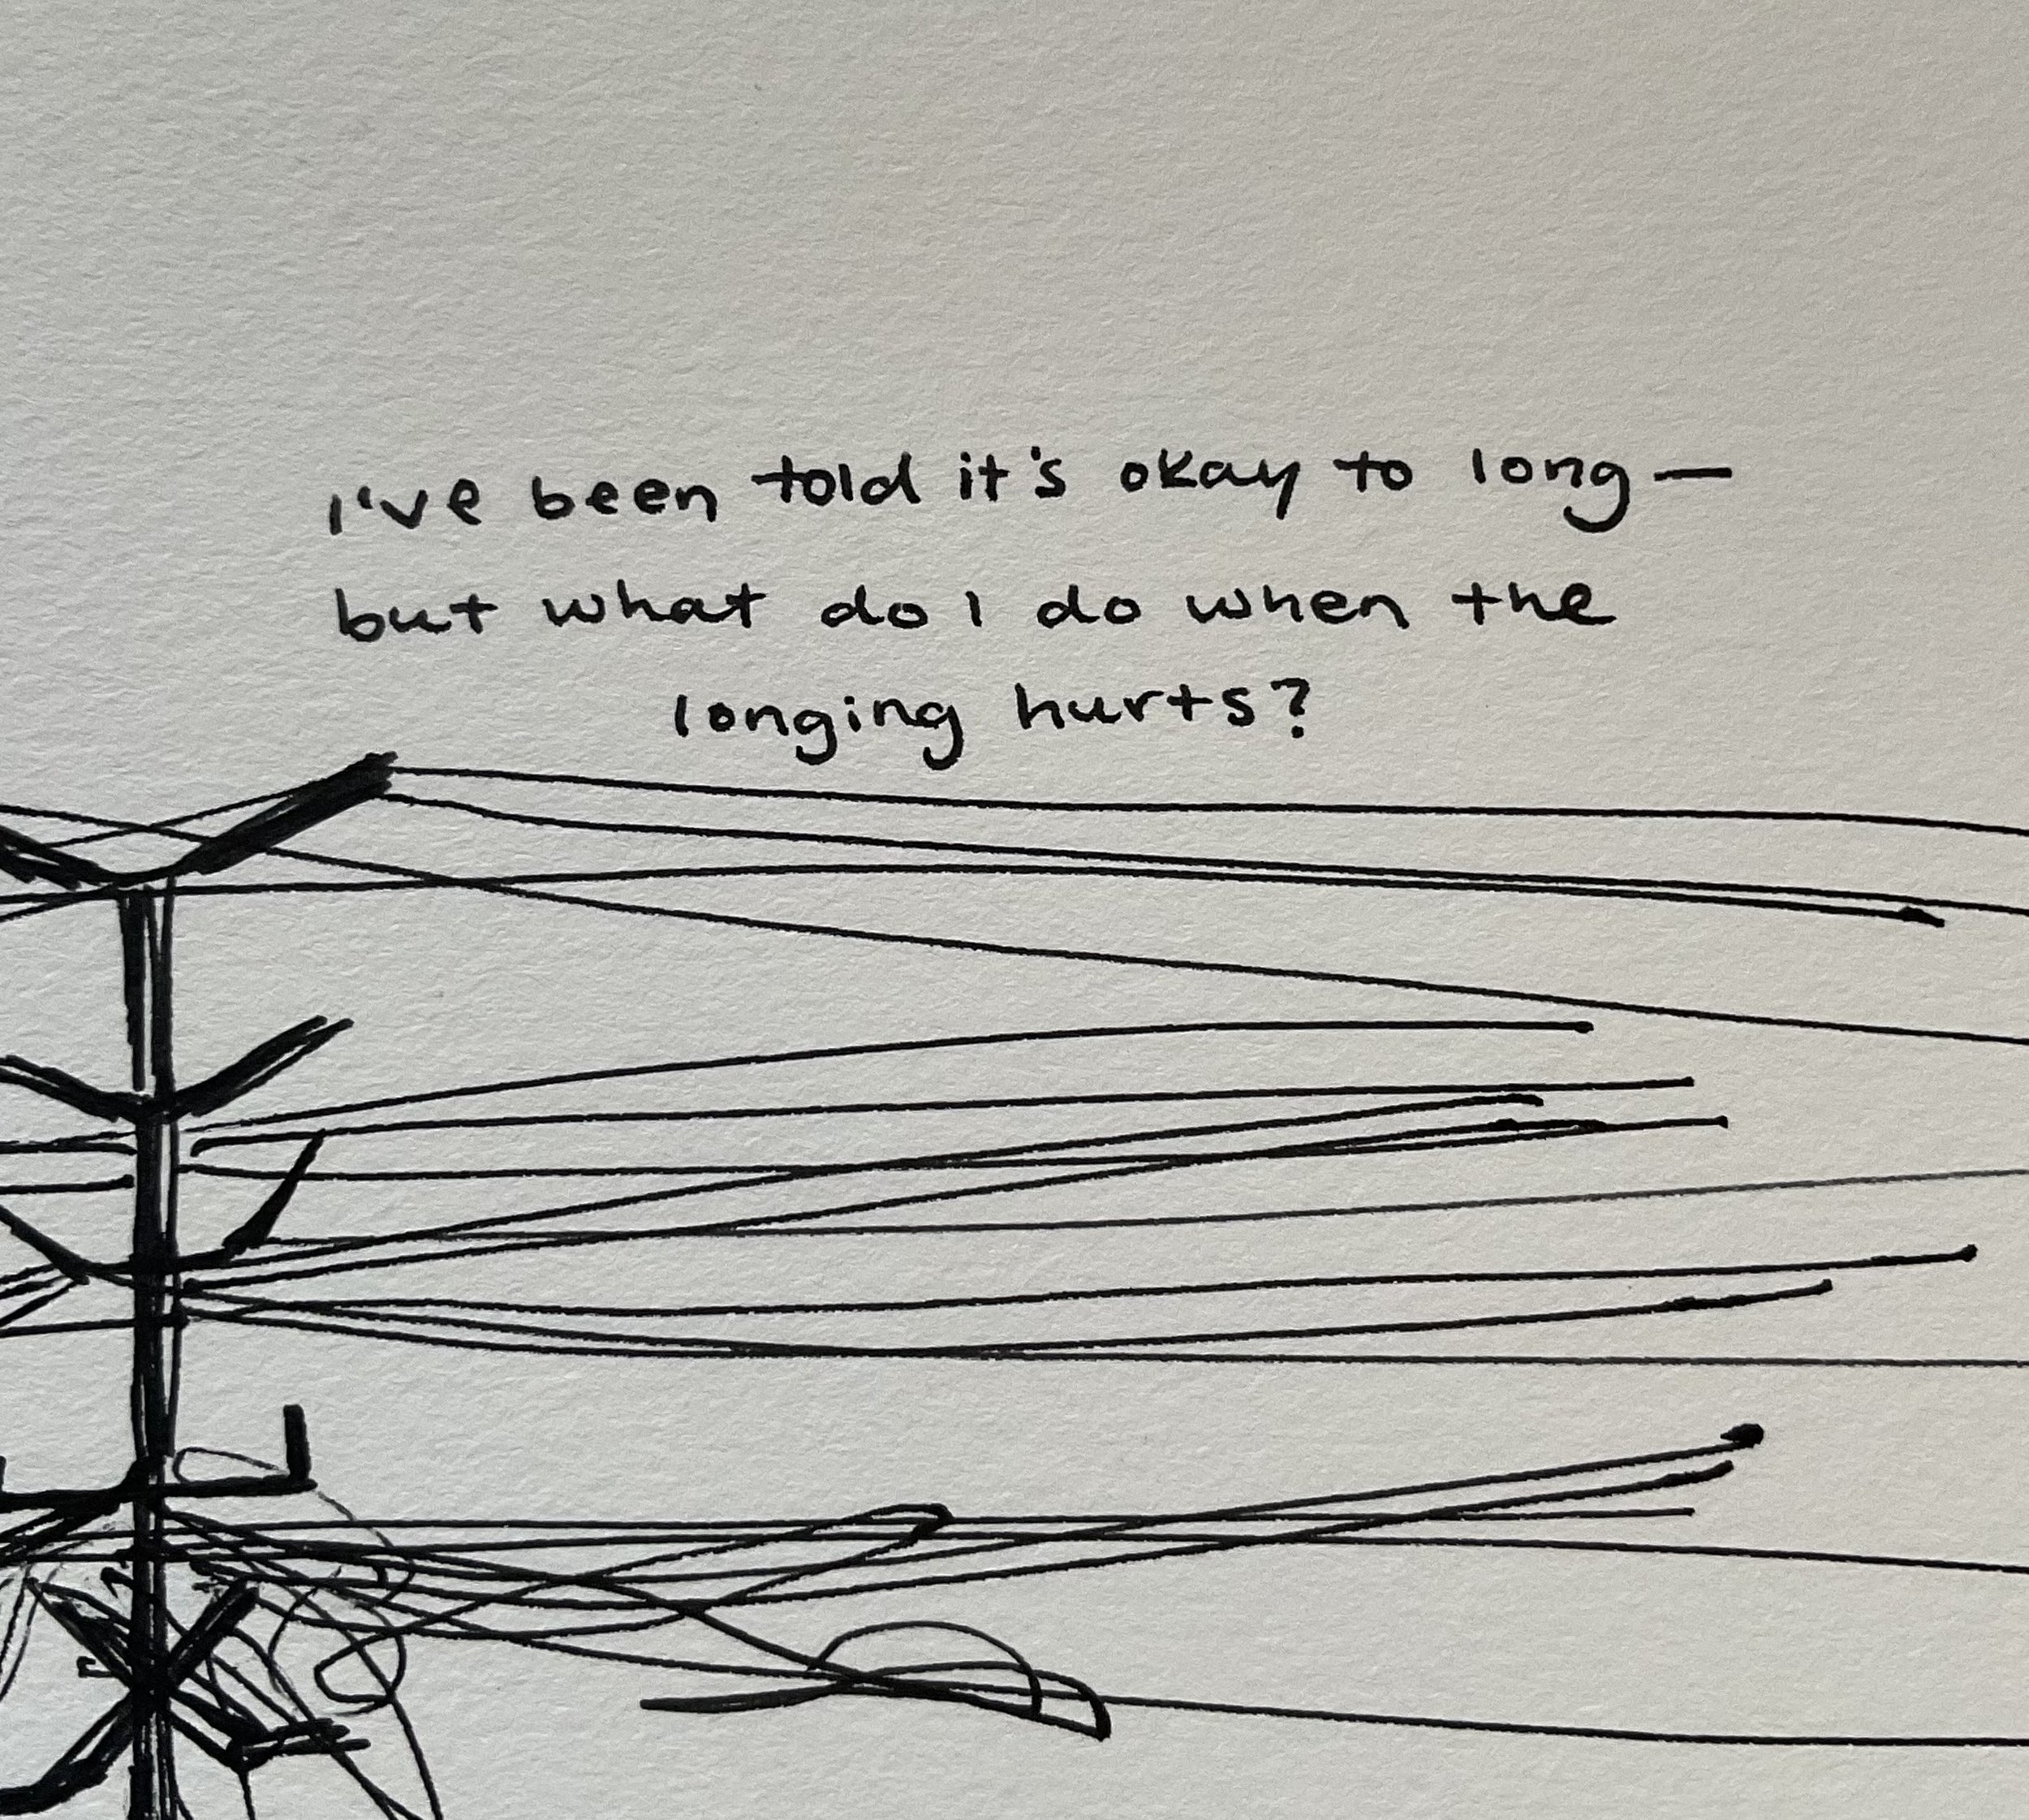 I've been told it's okay to long—
but what do I do when the
longing hurts?